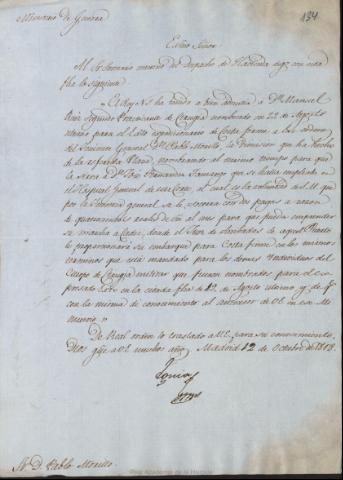 Ministerio de Guerra
134
Exmo. Señor
Al Sr. Secretario interino del Despacho de Hacienda digo con esta
fha. lo siguiente
El Rey N. S. ha tenido a bien admitir a Dn. Manuel
Ruiz Segundo Practicante de Cirugia nombrado en 22 de Agosto
último para el Exto. expedicionario de Costa firme a las ordenes
del Teniente General Dn. Pablo Morillo, la dimision que ha hecho
de la expresada Plaza, nombrando al mismo tiempo para que
la sirva a Dn. José Fernandez que se halla empleado en
el Hospital General de esta Corte, al cual es la voluntad de S. M. que
por la Tesoreria general se le socorra con dos pagas a razon
de quatrocientos reales de vn. al mes para que pueda emprender
su marcha a Cadiz, donde el Gefe de aquel Puerto
le proporcionará su embarque para Costa firme en los mismos
terminos que está mandado para los demas Individuos del
Cuerpo de Cirugia militar que fueron nombrados para el ex-
presado Exto. en la citada fha. de 22 de Agosto último y de
con la misma de conocimiento al antecesor de V. E. en ese Mi-
nisterio.
De Real orden lo traslado a V. E. para su conocimiento.
Dios gue. a V. E. muchos años. Madrid 12 de Octubre de 1818.
Sr. D. Pablo Morillo.
Real Academia de la Historia